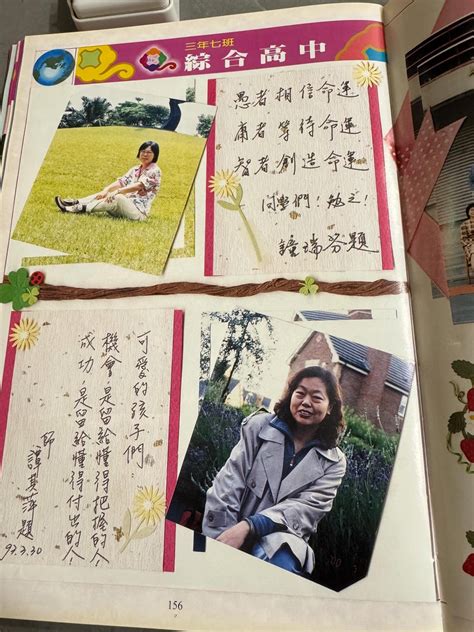 三年七班
綜合高中
愚者相信命運
庸者等待命運
智者創造命運
同學們！勉之！
瑞芬題
可愛的孩子們：
機會，是留給懂得把握的人
成功，是留給懂得付出的人
師
譚 萍題
93.3.30
156